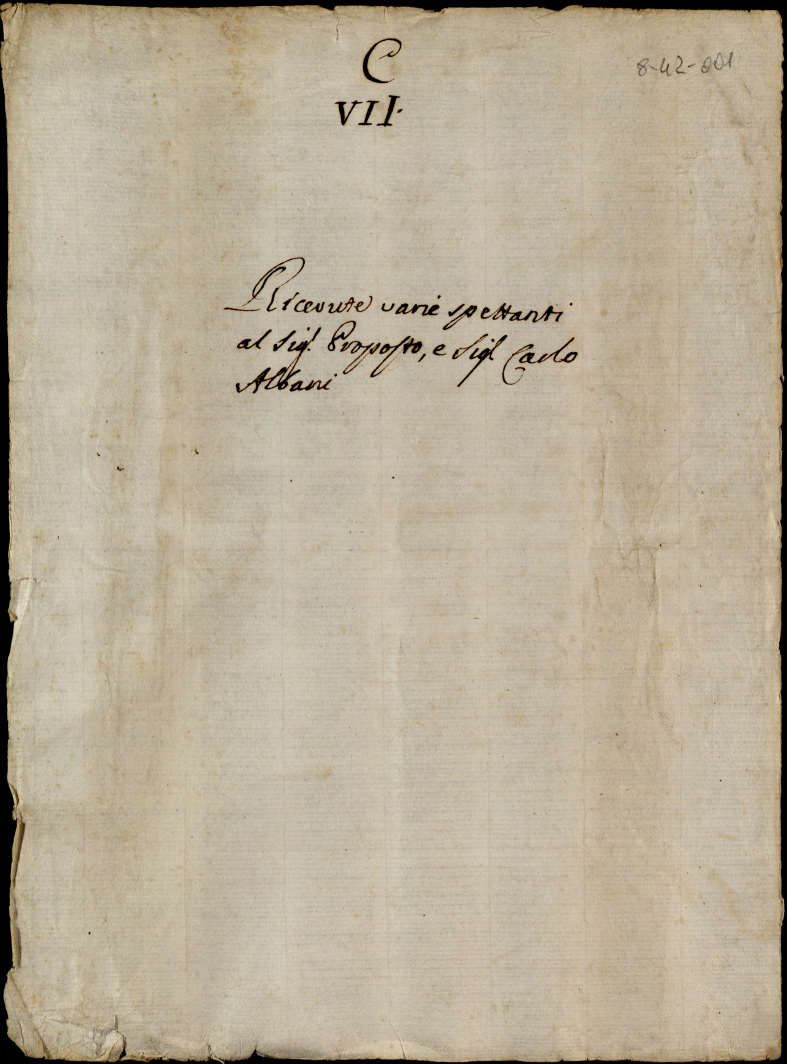 C
VII.
8-42-001
Ricevute varie spettanti
al Sig.r Proposto, e Sig.r Carlo
Albani